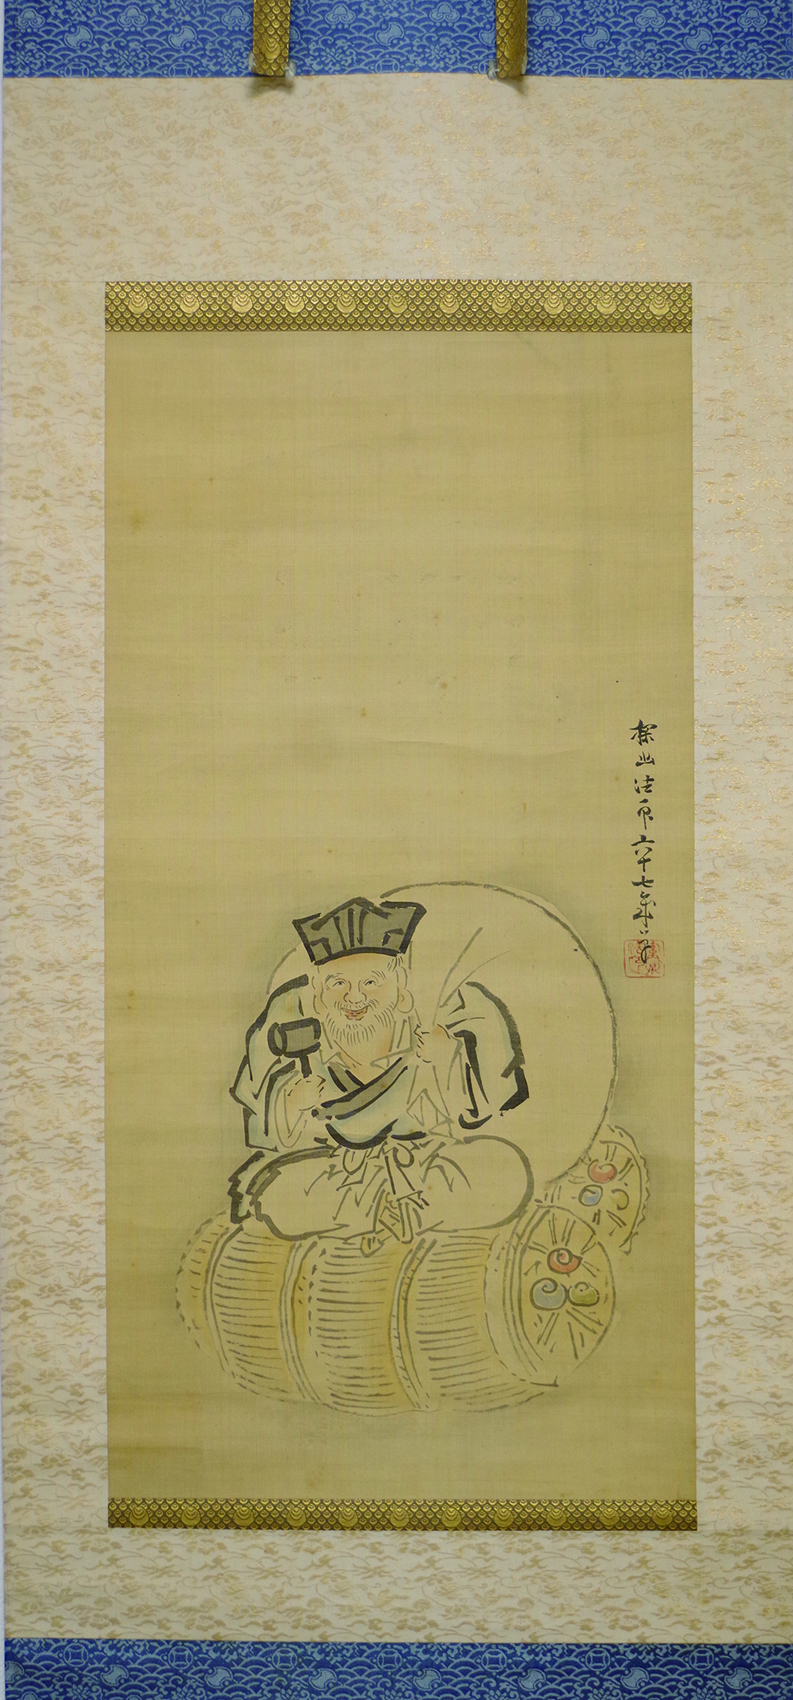 探幽法印六十七歳筆